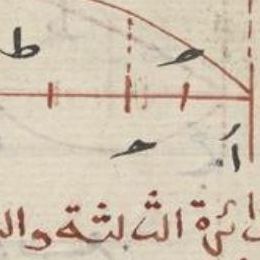 ط ح
أ ح
ـائرة الثالثة وال